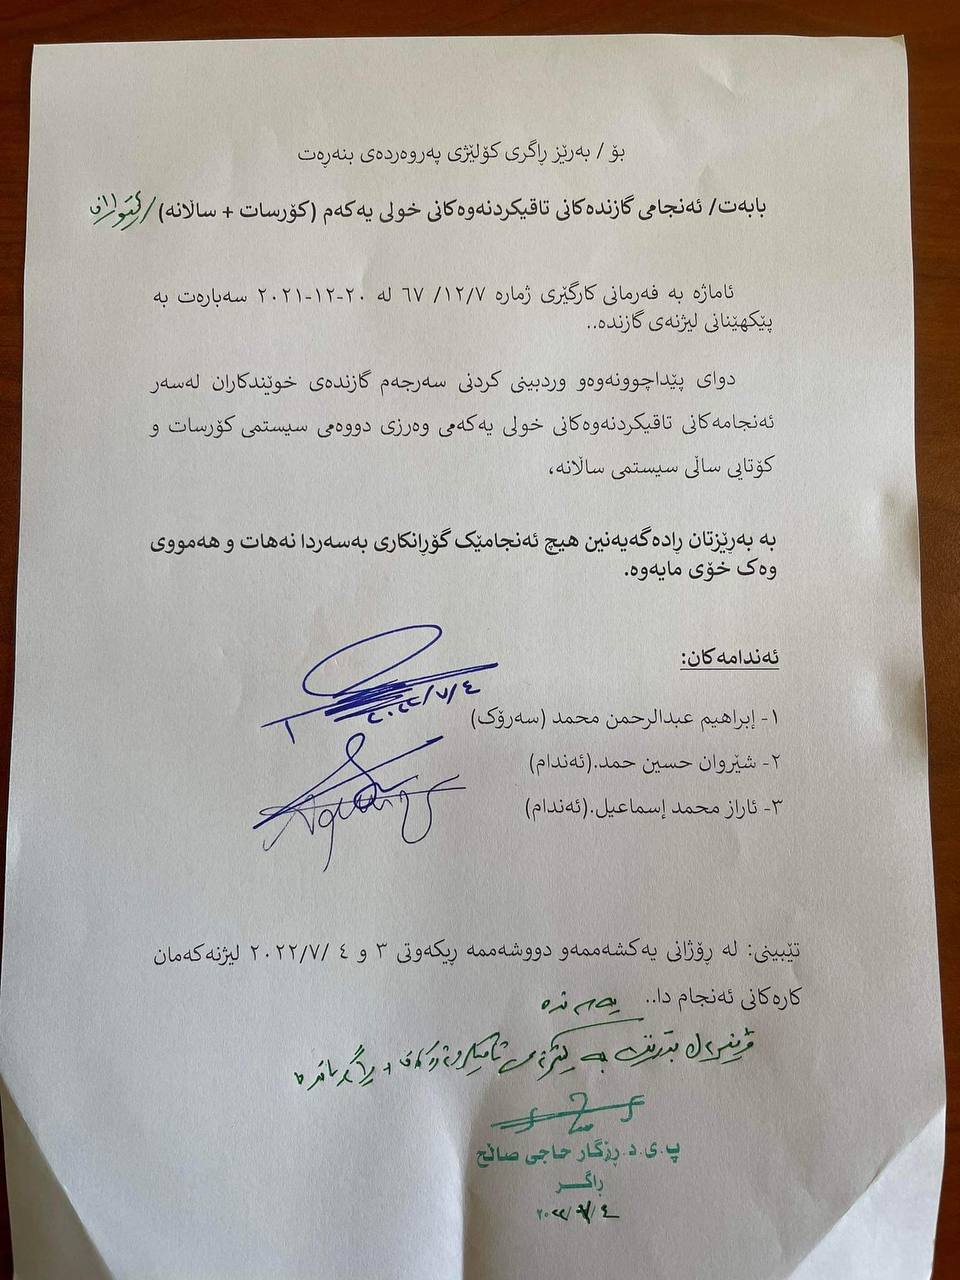 بۆ / بەرێز ڕاگری کۆلێژی پەروەردەی بنەڕەت
بابەت/ ئەنجامی گازندەکانی تاقیکردنەوەکانی خولی یەکەم (کۆرسات + ساڵانە)
ئاماژە بە فەرمانی کارگێری ژمارە ١٢/٧/ ٦٧ لە ٢٠-١٢-٢٠٢١ سەبارەت بە
پێکهێنانی لیژنەی گازندە..
دوای پێداچوونەوەو وردبینی کردنی سەرجەم گازندەی خوێندکاران لەسەر
ئەنجامەکانی تاقیکردنەوەکانی خولی یەکەمی وەرزی دووەمی سیستمی کۆرسات و
کۆتایی ساڵی سیستمی ساڵانە،
بە بەڕێزتان ڕادەگەیەنین هیچ ئەنجامێک گۆڕانکاری بەسەردا نەهات و هەمووی
وەک خۆی مایەوە.
ئەندامەکان:
١- إبراهیم عبدالرحمن محمد (سەرۆک)
٢٠٢٢/٧/٤
٢- شێروان حسین حمد.(ئەندام)
٣- ئاراز محمد إسماعیل.(ئەندام)
تێبینی: لە ڕۆژانی یەکشەممەو دووشەممە ڕیکەوتی ٣ و ٤ /٢٠٢٢/٧ لیژنەکەمان
کارەکانی ئەنجام دا..
پ.ی.د.ڕزگار حاجي صالح
ڕاگــر
٢٠٢٢/٧/٤